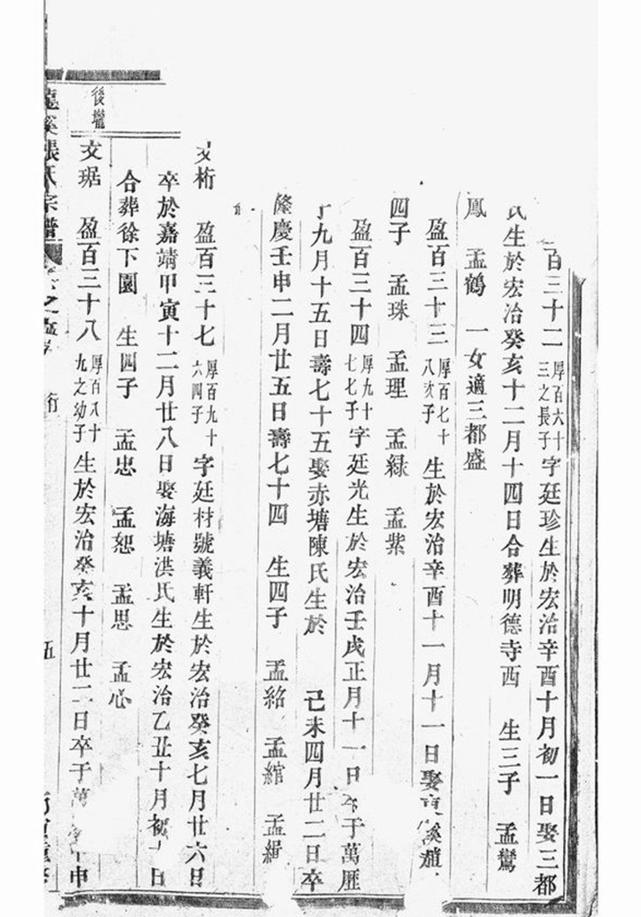 百三十二 厚百六十三之長子 字廷珍生於宏治辛酉十月初一日娶三都
氏生於宏治癸亥十二月十四日合葬明德寺西 生三子 孟鸞
鳳 孟鶴 一女適三都盛
盈百三十三 厚百七十八次子 生於宏治辛酉十一月十一日娶東溪趙
四子 孟珠 孟理 孟綠 孟紫
盈百三十四 厚九十七七子 字廷光生於宏治壬戌正月十一日卒于萬歴
九月十五日壽七十五娶赤塘陳氏生於 己未四月廿二日卒
隆慶壬申二月廿五日壽七十四 生四子 孟紹 孟綰 孟緝
文桁 盈百三十七 厚百九十六四子 字廷材號義軒生於宏治癸亥七月廿六日
卒於嘉靖甲寅十二月廿八日娶海塘洪氏生於宏治乙丑十月初 日
合葬徐下園 生四子 孟忠 孟恕 孟思 孟心
後壠
文琚 盈百三十八 厚百八十九之幼子 生於宏治癸亥十月廿二日卒于萬 申
龍溪張氏宗譜 之 行 五